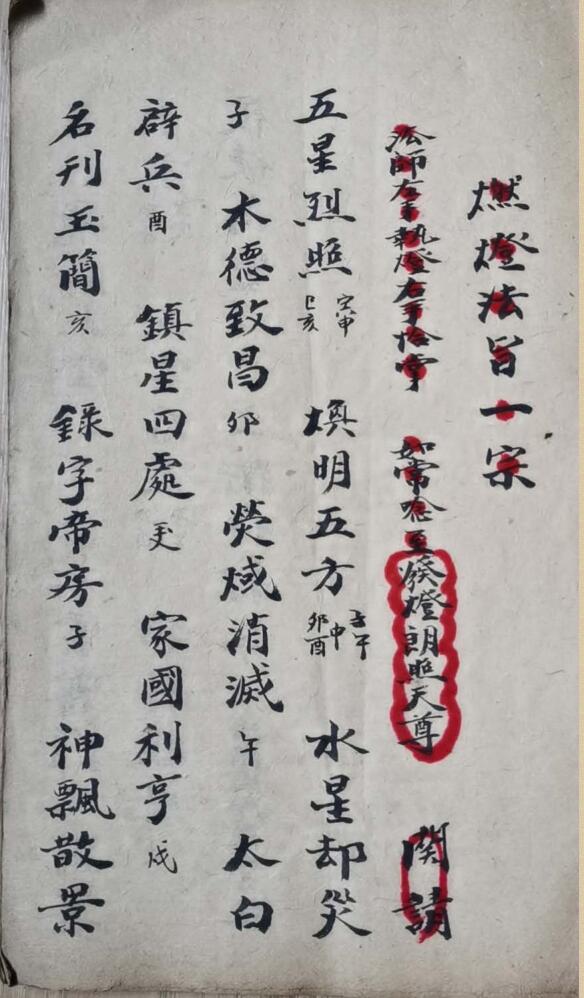 燃燈法旨一宗
法師左手執燈右手恰掌 如常唸至燃燈朗照天尊 関請
五星烈照 寅申巳亥 煥明五方 子午中卯酉 水星却災
子 木德致昌 卯 熒惑消滅 午 太白
辟兵 酉 鎮星四處 家國利亨 戌
名刊玉簡 亥 錄字帝房 子 神飄散景